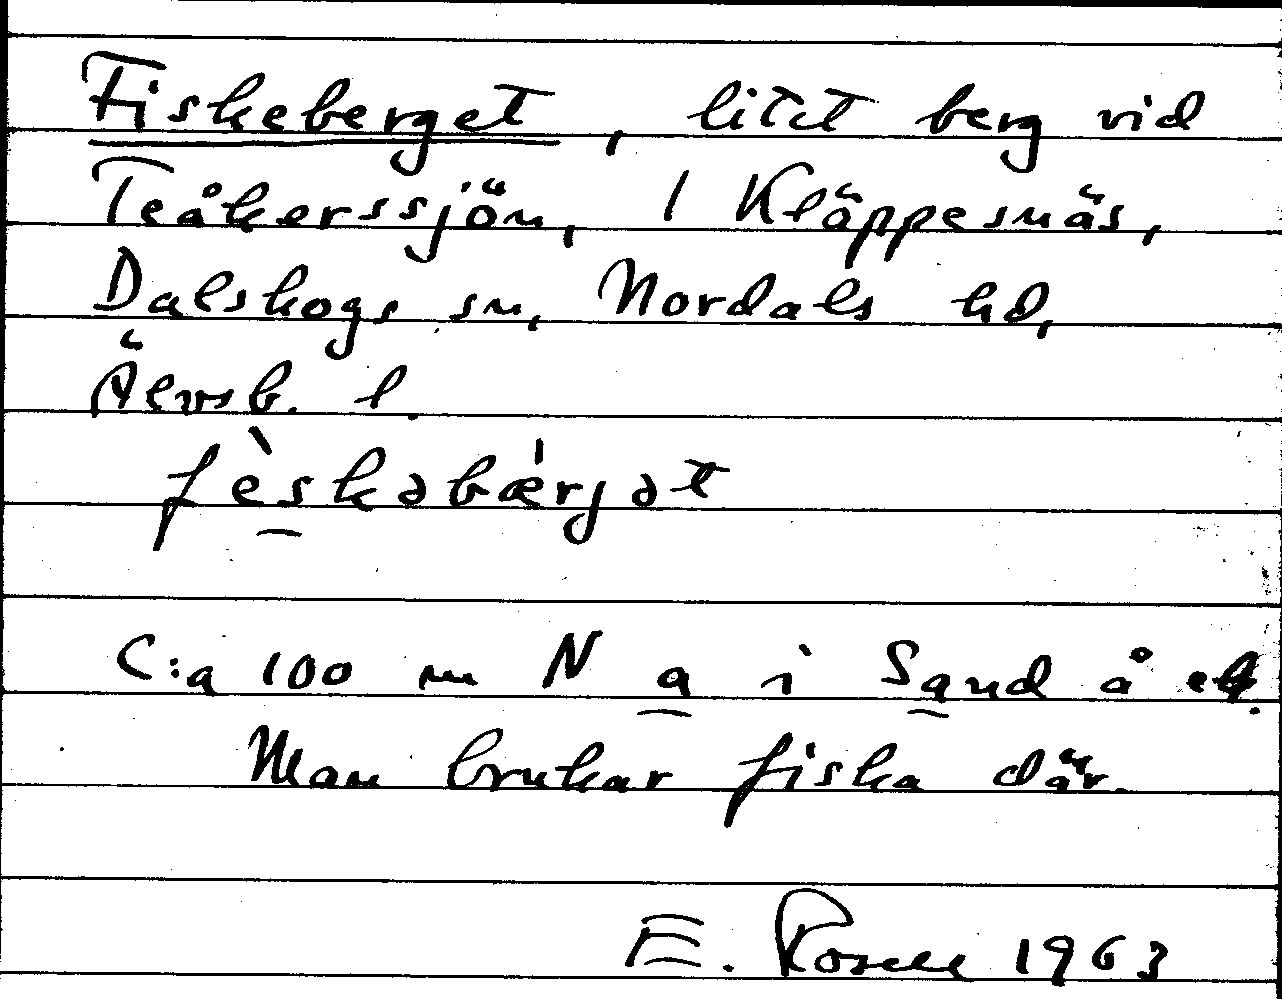 Fiskeberget, litet berg vid
Teåkerssjön, 1 Kläppesnäs,
Dalskogs sn, Nordals hd,
Älvsb. l.
fèskəbǽrjət
C:a 100 m N a i Sand å
Man brukar fiska där.
E. Rosell 1963